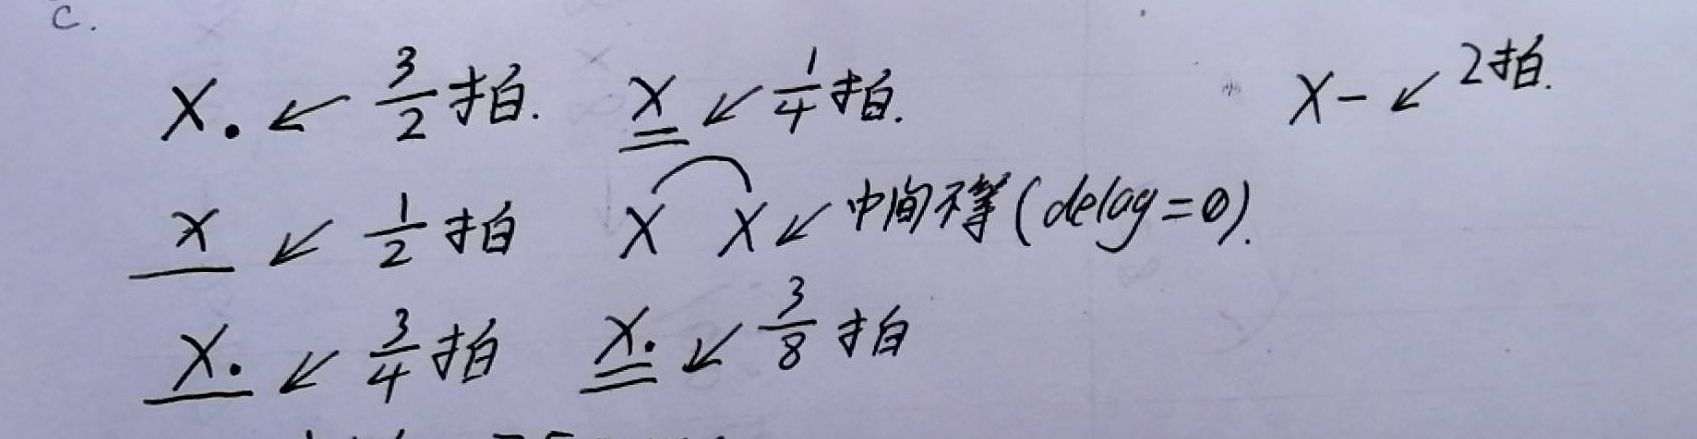 C.
X. ← 3/2 拍. X ↙ 1/4 拍. X- ↙ 2拍.
X ↙ 1/2 拍 X X ↙ 中间不等(delay=0).
X. ↙ 3/4 拍 X. ↙ 3/8 拍